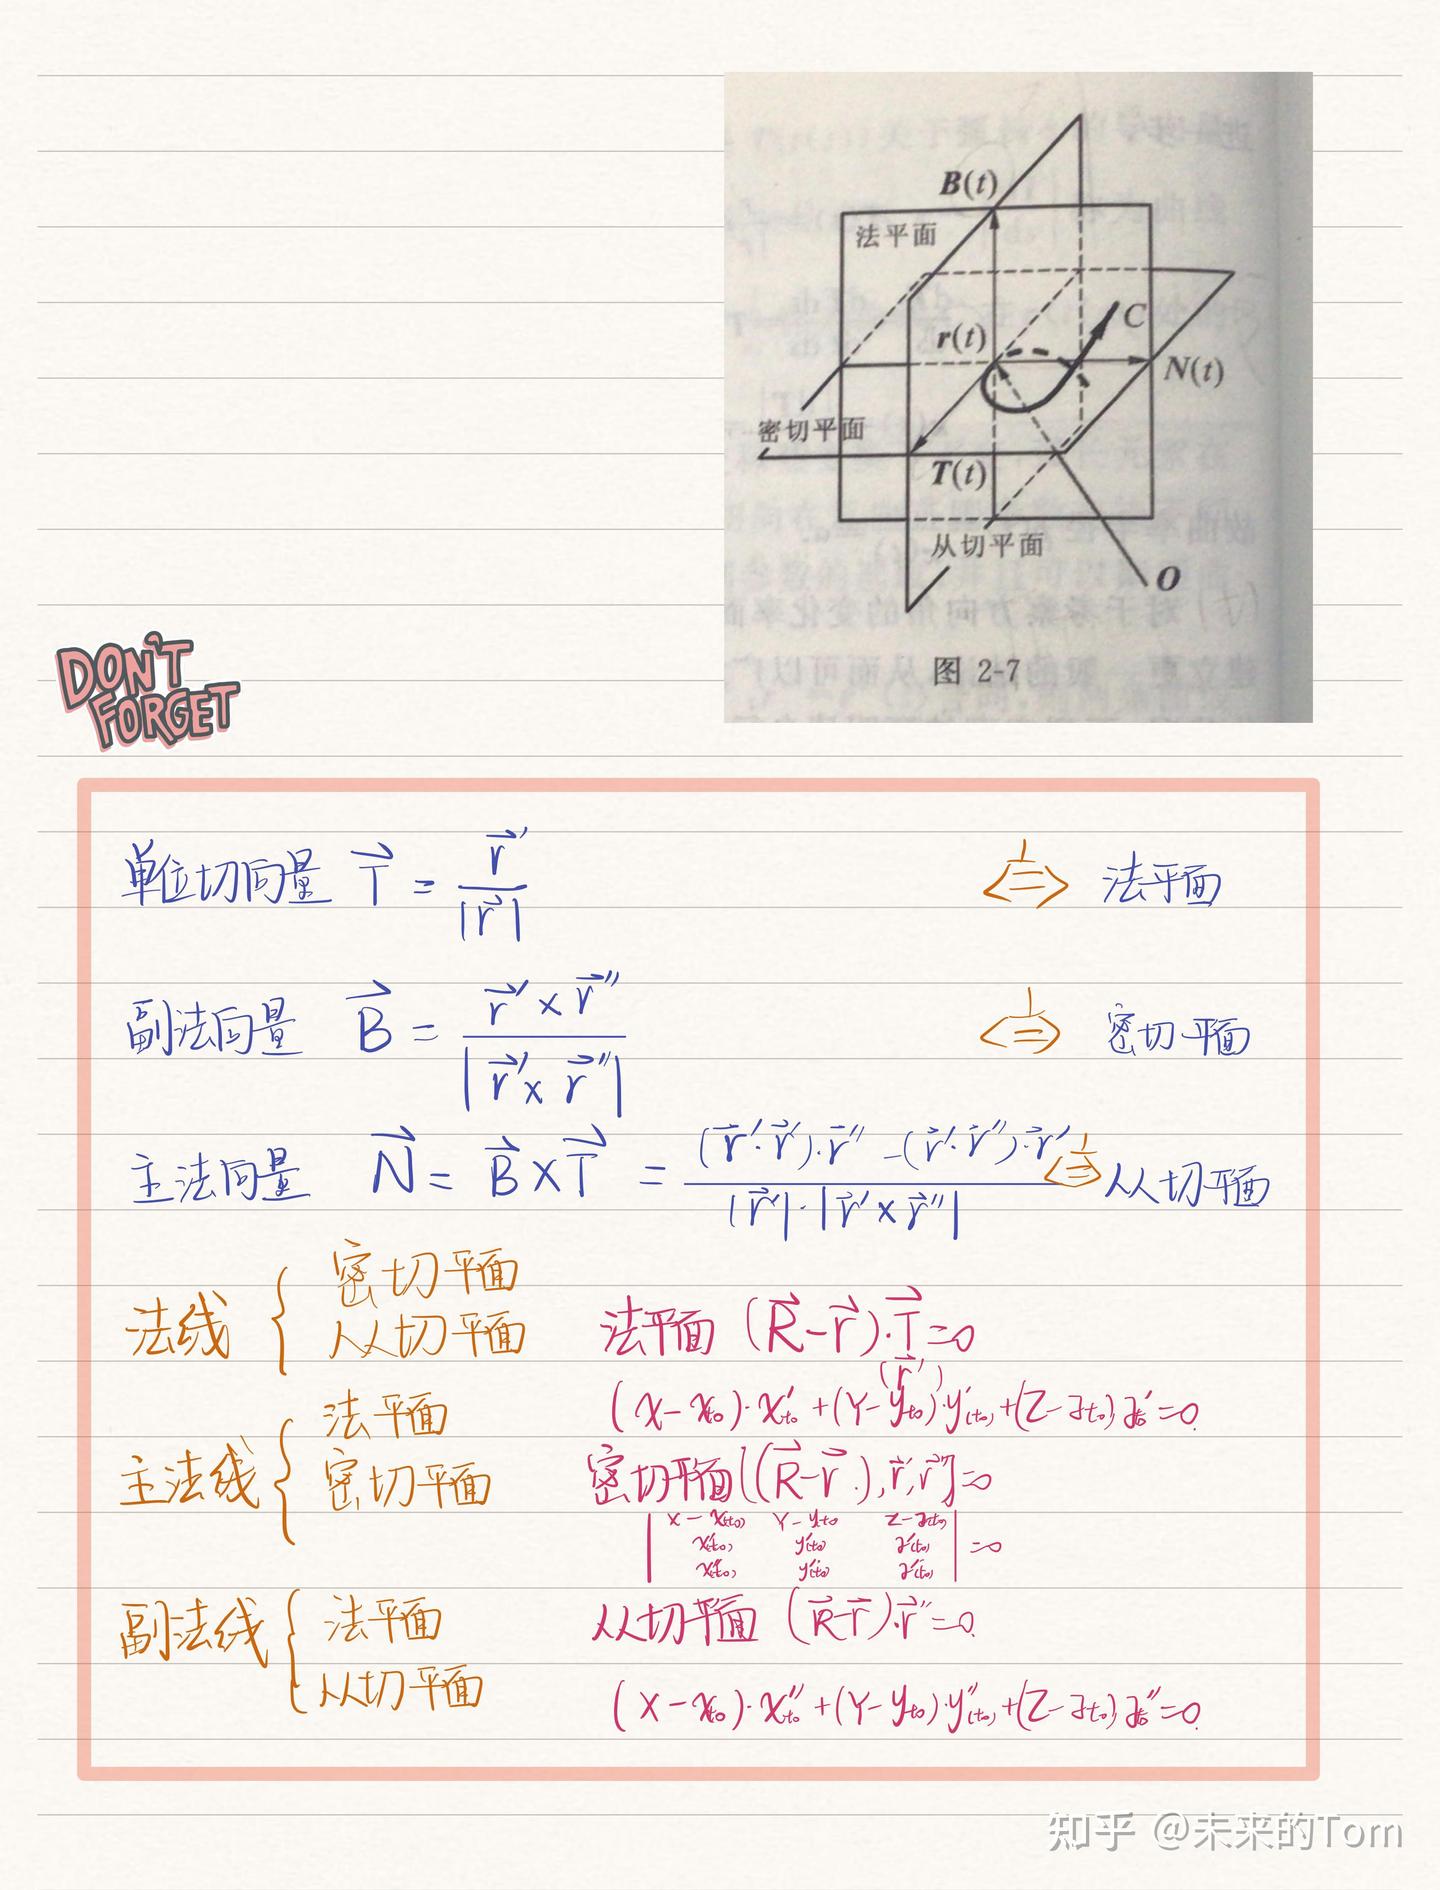 B(t)
法平面
r(t)
C
N(t)
密切平面
T(t)
从切平面
O
图 2-7
DON'T
FORGET
单位切向量 T⃗ = r⃗′ / |r⃗′| ⊥⇔ 法平面
副法向量 B⃗ = (r⃗′ × r⃗″) / |r⃗′ × r⃗″| ⊥⇔ 密切平面
主法向量 N⃗ = B⃗ × T⃗ = ((r⃗′·r⃗′)·r⃗″ - (r⃗′·r⃗″)·r⃗′) / (|r⃗′|·|r⃗′ × r⃗″|) ⊥⇔ 从切平面
法线 { 密切平面
从切平面
法平面 (R⃗ - r⃗)·T⃗ = 0
(r⃗′)
(X - x(t₀))·x′(t₀) + (Y - y(t₀))·y′(t₀) + (Z - z(t₀)) z′(t₀) = 0
主法线 { 法平面
密切平面
密切平面 [(R⃗ - r⃗), r⃗′, r⃗″] = 0
| X - x(t₀) Y - y(t₀) Z - z(t₀) |
| x′(t₀) y′(t₀) z′(t₀) | = 0
| x″(t₀) y″(t₀) z″(t₀) |
副法线 { 法平面
从切平面
从切平面 (R⃗ - r⃗)·r⃗″ = 0
(X - x(t₀))·x″(t₀) + (Y - y(t₀))·y″(t₀) + (Z - z(t₀)) z″(t₀) = 0
知乎 @未来的Tom